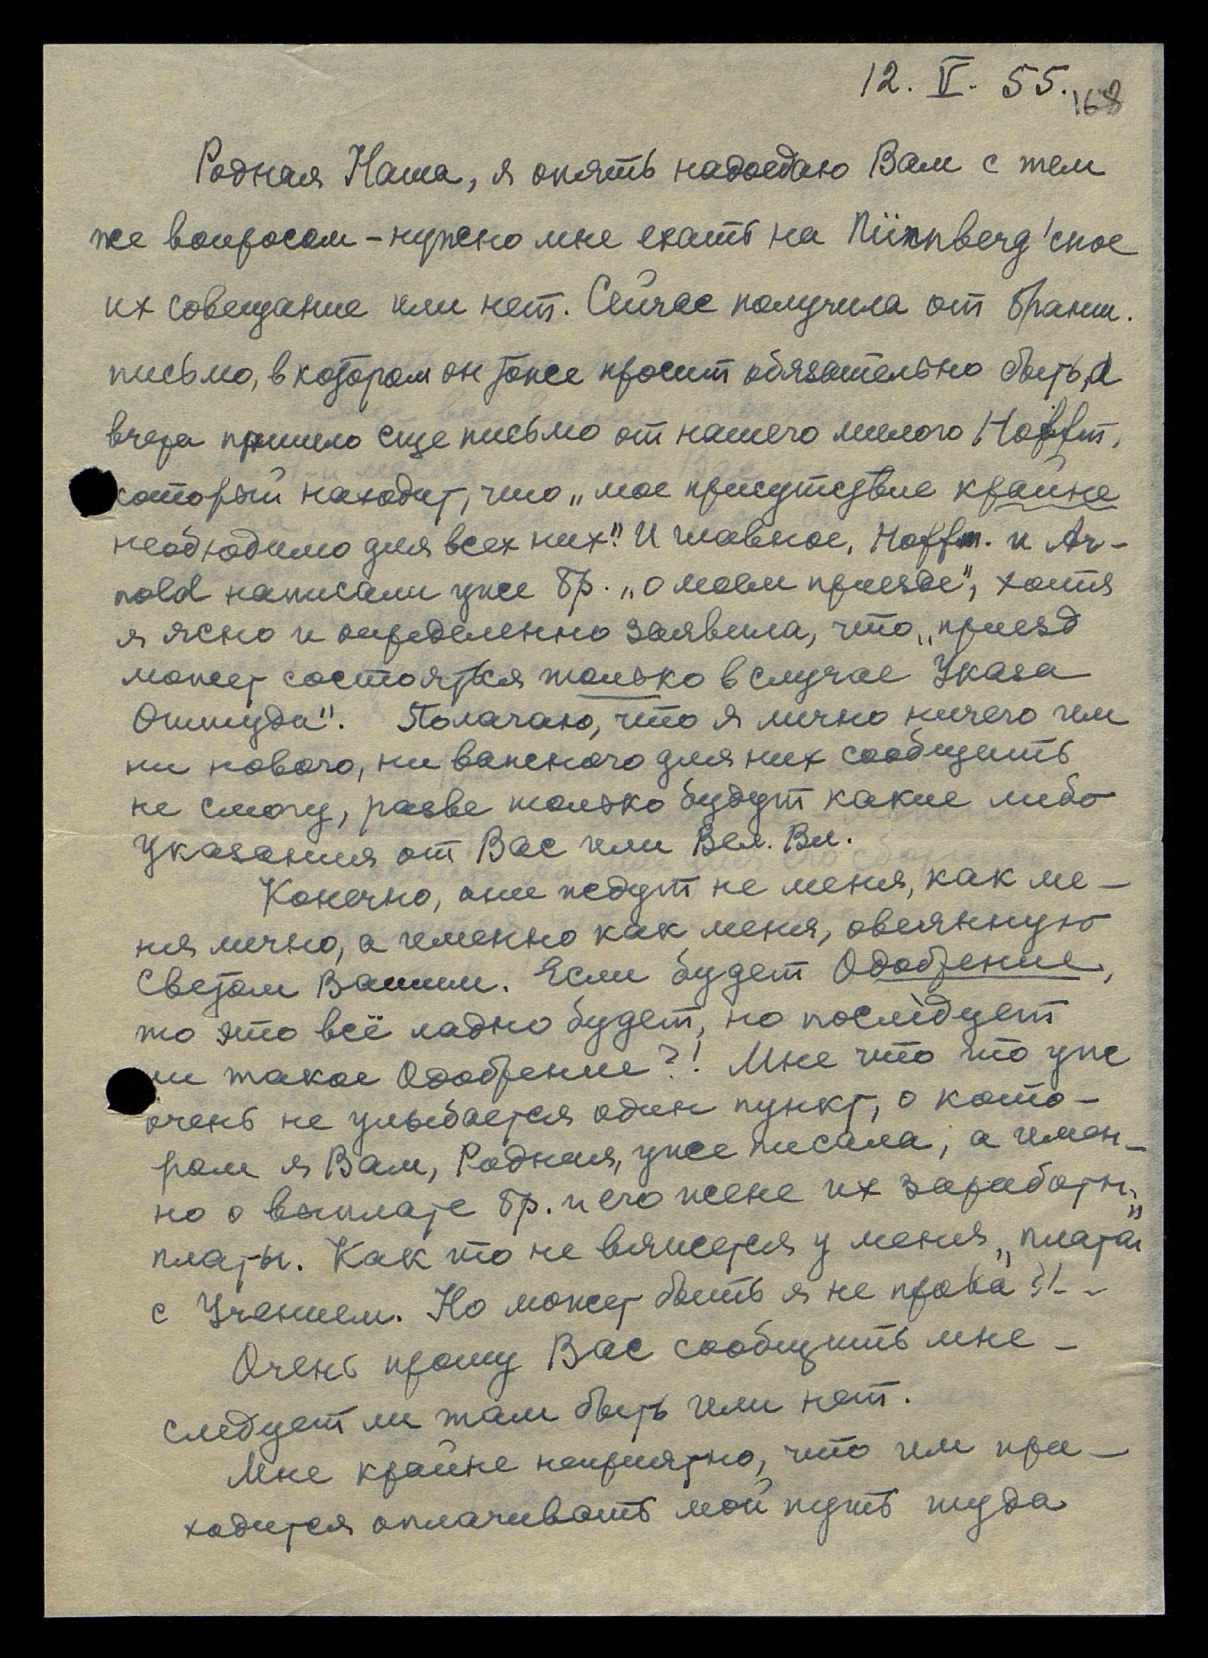 12. V. 55.
168
Родная Наша, я опять надоедаю Вам с тем
же вопросом – нужно мне ехать на Nürnberg'ское
их совещание или нет. Сейчас получила от Браниц.
письмо, в котором он тоже просит обязательно быть, а
вчера пришло еще письмо от нашего милого Hoffm.
который находит, что „мое присутствие крайне
необходимо для всех них". И главное, Hoffm. и Ar-
nold написали уже Бр. „о моем приезде", хотя
я ясно и определенно заявила, что „приезд
может состояться только в случае Указа
Оттуда". Полагаю, что я лично ничего им
ни нового, ни важного для них сообщить
не смогу, разве только будут какие либо
Указания от Вас или Вел. Вл.
Конечно, они ждут не меня, как ме-
ня лично, а именно как меня, овеянную
Светом Вашим. Если будет Одобрение,
то это всё ладно будет, но последует
ли такое Одобрение?! Мне что то уже
очень не улыбается один пункт, о кото-
ром я Вам, Родная, уже писала, а имен-
но о выплате Бр. и его жене их заработн.
платы. Как то не вяжется у меня „плата"
с Учением. Но может быть я не права?! -
Очень прошу Вас сообщить мне -
следует ли там быть или нет.
Мне крайне неприятно, что им при-
ходится оплачивать мой путь туда